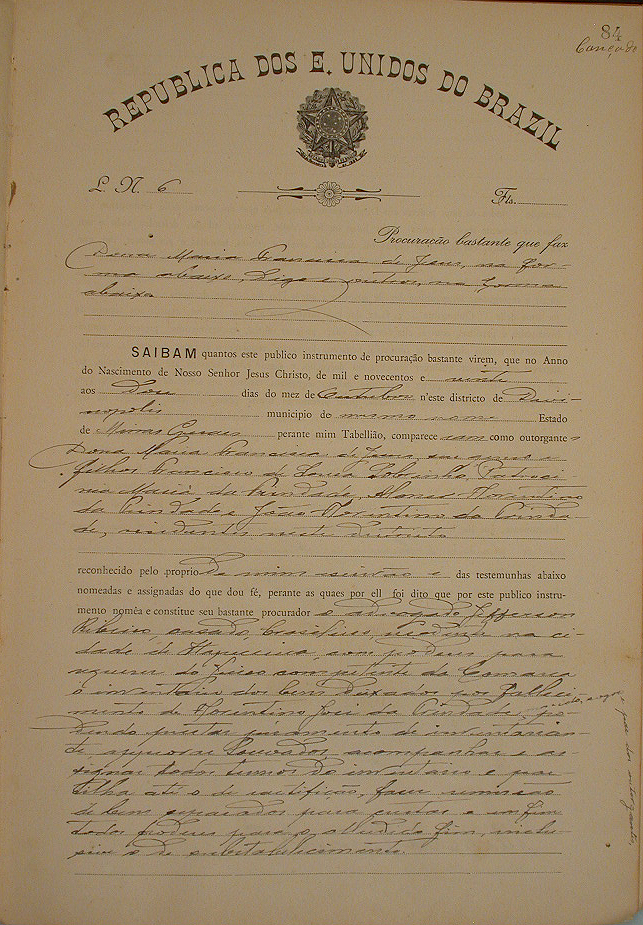 84
REPUBLICA DOS E. UNIDOS DO BRAZIL
L. N. 6
Fls.
Procuração bastante que faz
Dona Maria Francisca de Jesus, na for-
ma abaixo, digo e outros, na forma
abaixo
SAIBAM quantos este publico instrumento de procuração bastante virem, que no Anno
do Nascimento de Nosso Senhor Jesus Christo, de mil e novecentos e vinte
aos Dous dias do mez de Outubro n'este districto de Divi-
nopolis municipio do mesmo nome Estado
de Minas Geraes perante mim Tabellião, comparece ram como outorgante s
Dona Maria Francisca de Jesus, seu genro e
filhos Francisco de Souza Sobrinho, Patroci
nia Maria da Trindade, Florentino
da Trindade e João Florentino da Trinda-
de, residentes neste districto
reconhecido pelo proprio de mim escrivão e das testemunhas abaixo
nomeadas e assignadas do que dou fé, perante as quaes por ell foi dito que por este publico instru-
mento nomêa e constitue seu bastante procurador o advogado Jefferson
Ribeiro, casado, brasileiro, residente na ci-
dade de Itapecerica, com poderes para
requerer do Juizo competente da Comarca
o inventario dos bens deixados por falleci-
mento de Florentino José da Trindade, po-
dendo prestar juramento de inventarian-
te, approvar louvados, acompanhar e as-
signar todos termos do inventario e par-
tilha até o de ratificação, fazer remissão
de bens separados para custas e emfim
todos poderes para o alludido fim, inclu-
sive o de substabelecimento.